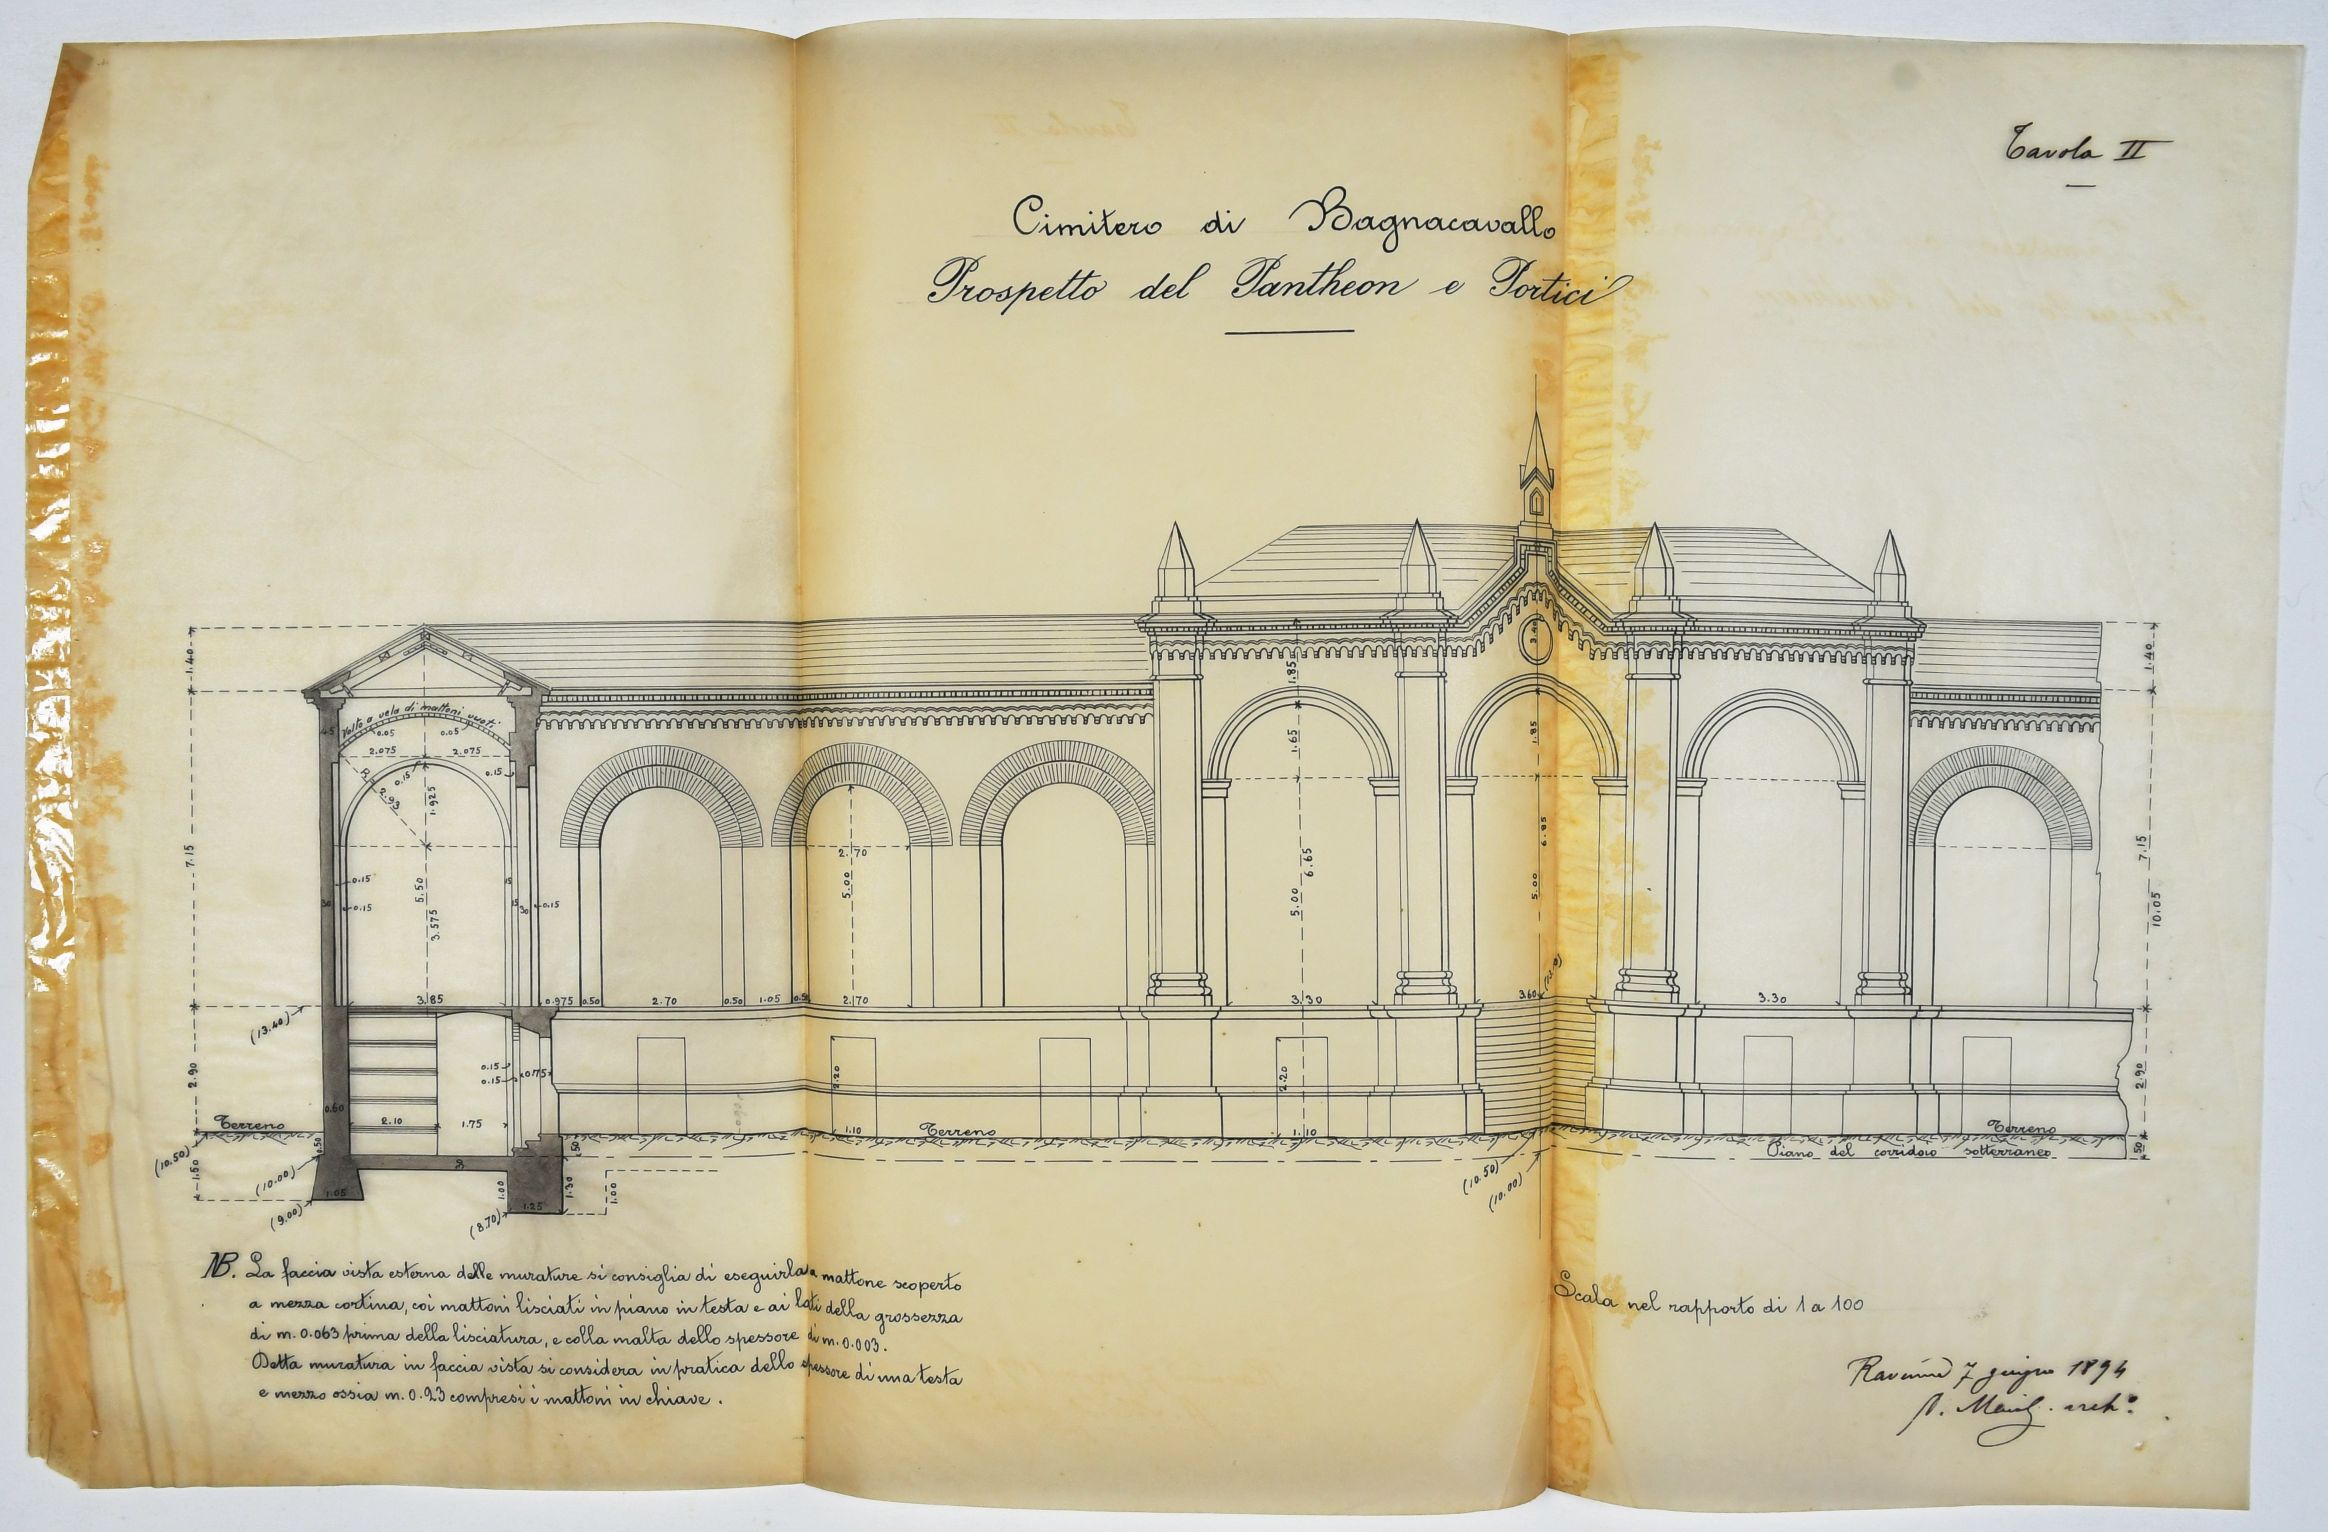 Tavola II
Cimitero di Bagnacavallo
Prospetto del Pantheon e Portici
1.40
7.15
2.90
1.50
Volto a vela di mattoni vuoti
45
0.05
0.05
2.075
2.075
0.15
0.15
R = 2.93
1.925
5.50
3.575
0.15
0.15
30
15
15
30
0.15
3.85
0.975
0.50
2.70
0.50
1.05
0.50
2.70
5.00
2.70
1.85
1.65
6.65
5.00
3.30
3.40
1.85
6.85
5.00
3.60
3.30
1.40
7.15
10.05
2.90
50
(13.40)
0.15
0.15
0.175
0.60
2.10
1.75
2.20
1.10
2.20
1.10
Terreno
Terreno
Terreno
Piano del corridoio sotterraneo
(10.50)
(10.00)
(9.00)
0.50
1.05
(8.70)
1.00
1.25
50
1.30
1.00
(10.50)
(10.00)
NB. La faccia vista esterna delle murature si consiglia di eseguirla a mattone scoperto
a mezza cortina, coi mattoni lisciati in piano in testa e ai lati della grossezza
di m. 0.063 prima della lisciatura, e colla malta dello spessore di m. 0.003.
Detta muratura in faccia vista si considera in pratica dello spessore di una testa
e mezzo ossia m. 0.23 compresi i mattoni in chiave.
Scala nel rapporto di 1 a 100
Ravenna 7 giugno 1894